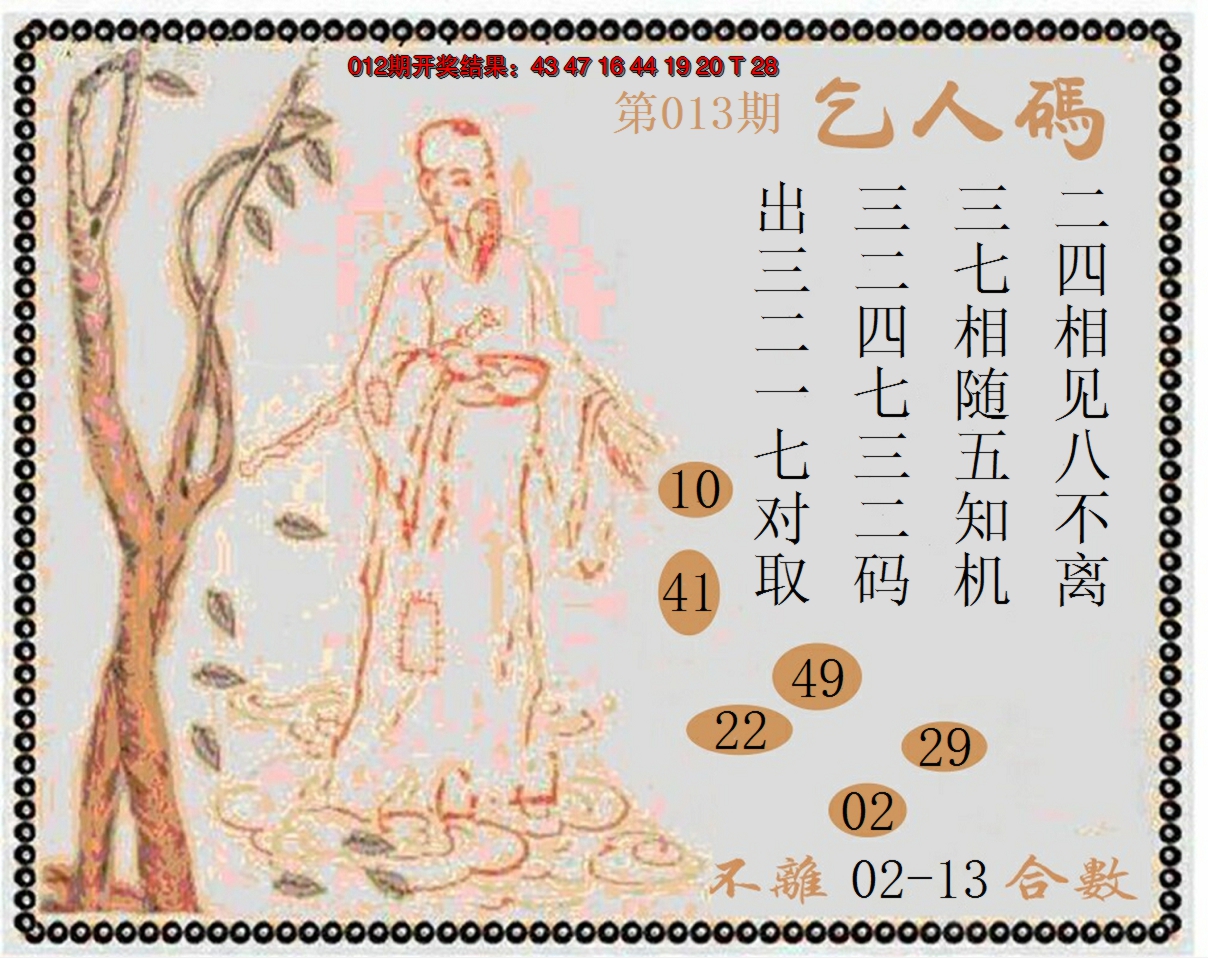 012期开奖结果：43 47 16 44 19 20 T 28
第013期
乞人碼
二四相见八不离
三七相随五知机
三二四七三二码
出三二一七对取
10
41
49
22
29
02
不離 02-13 合數